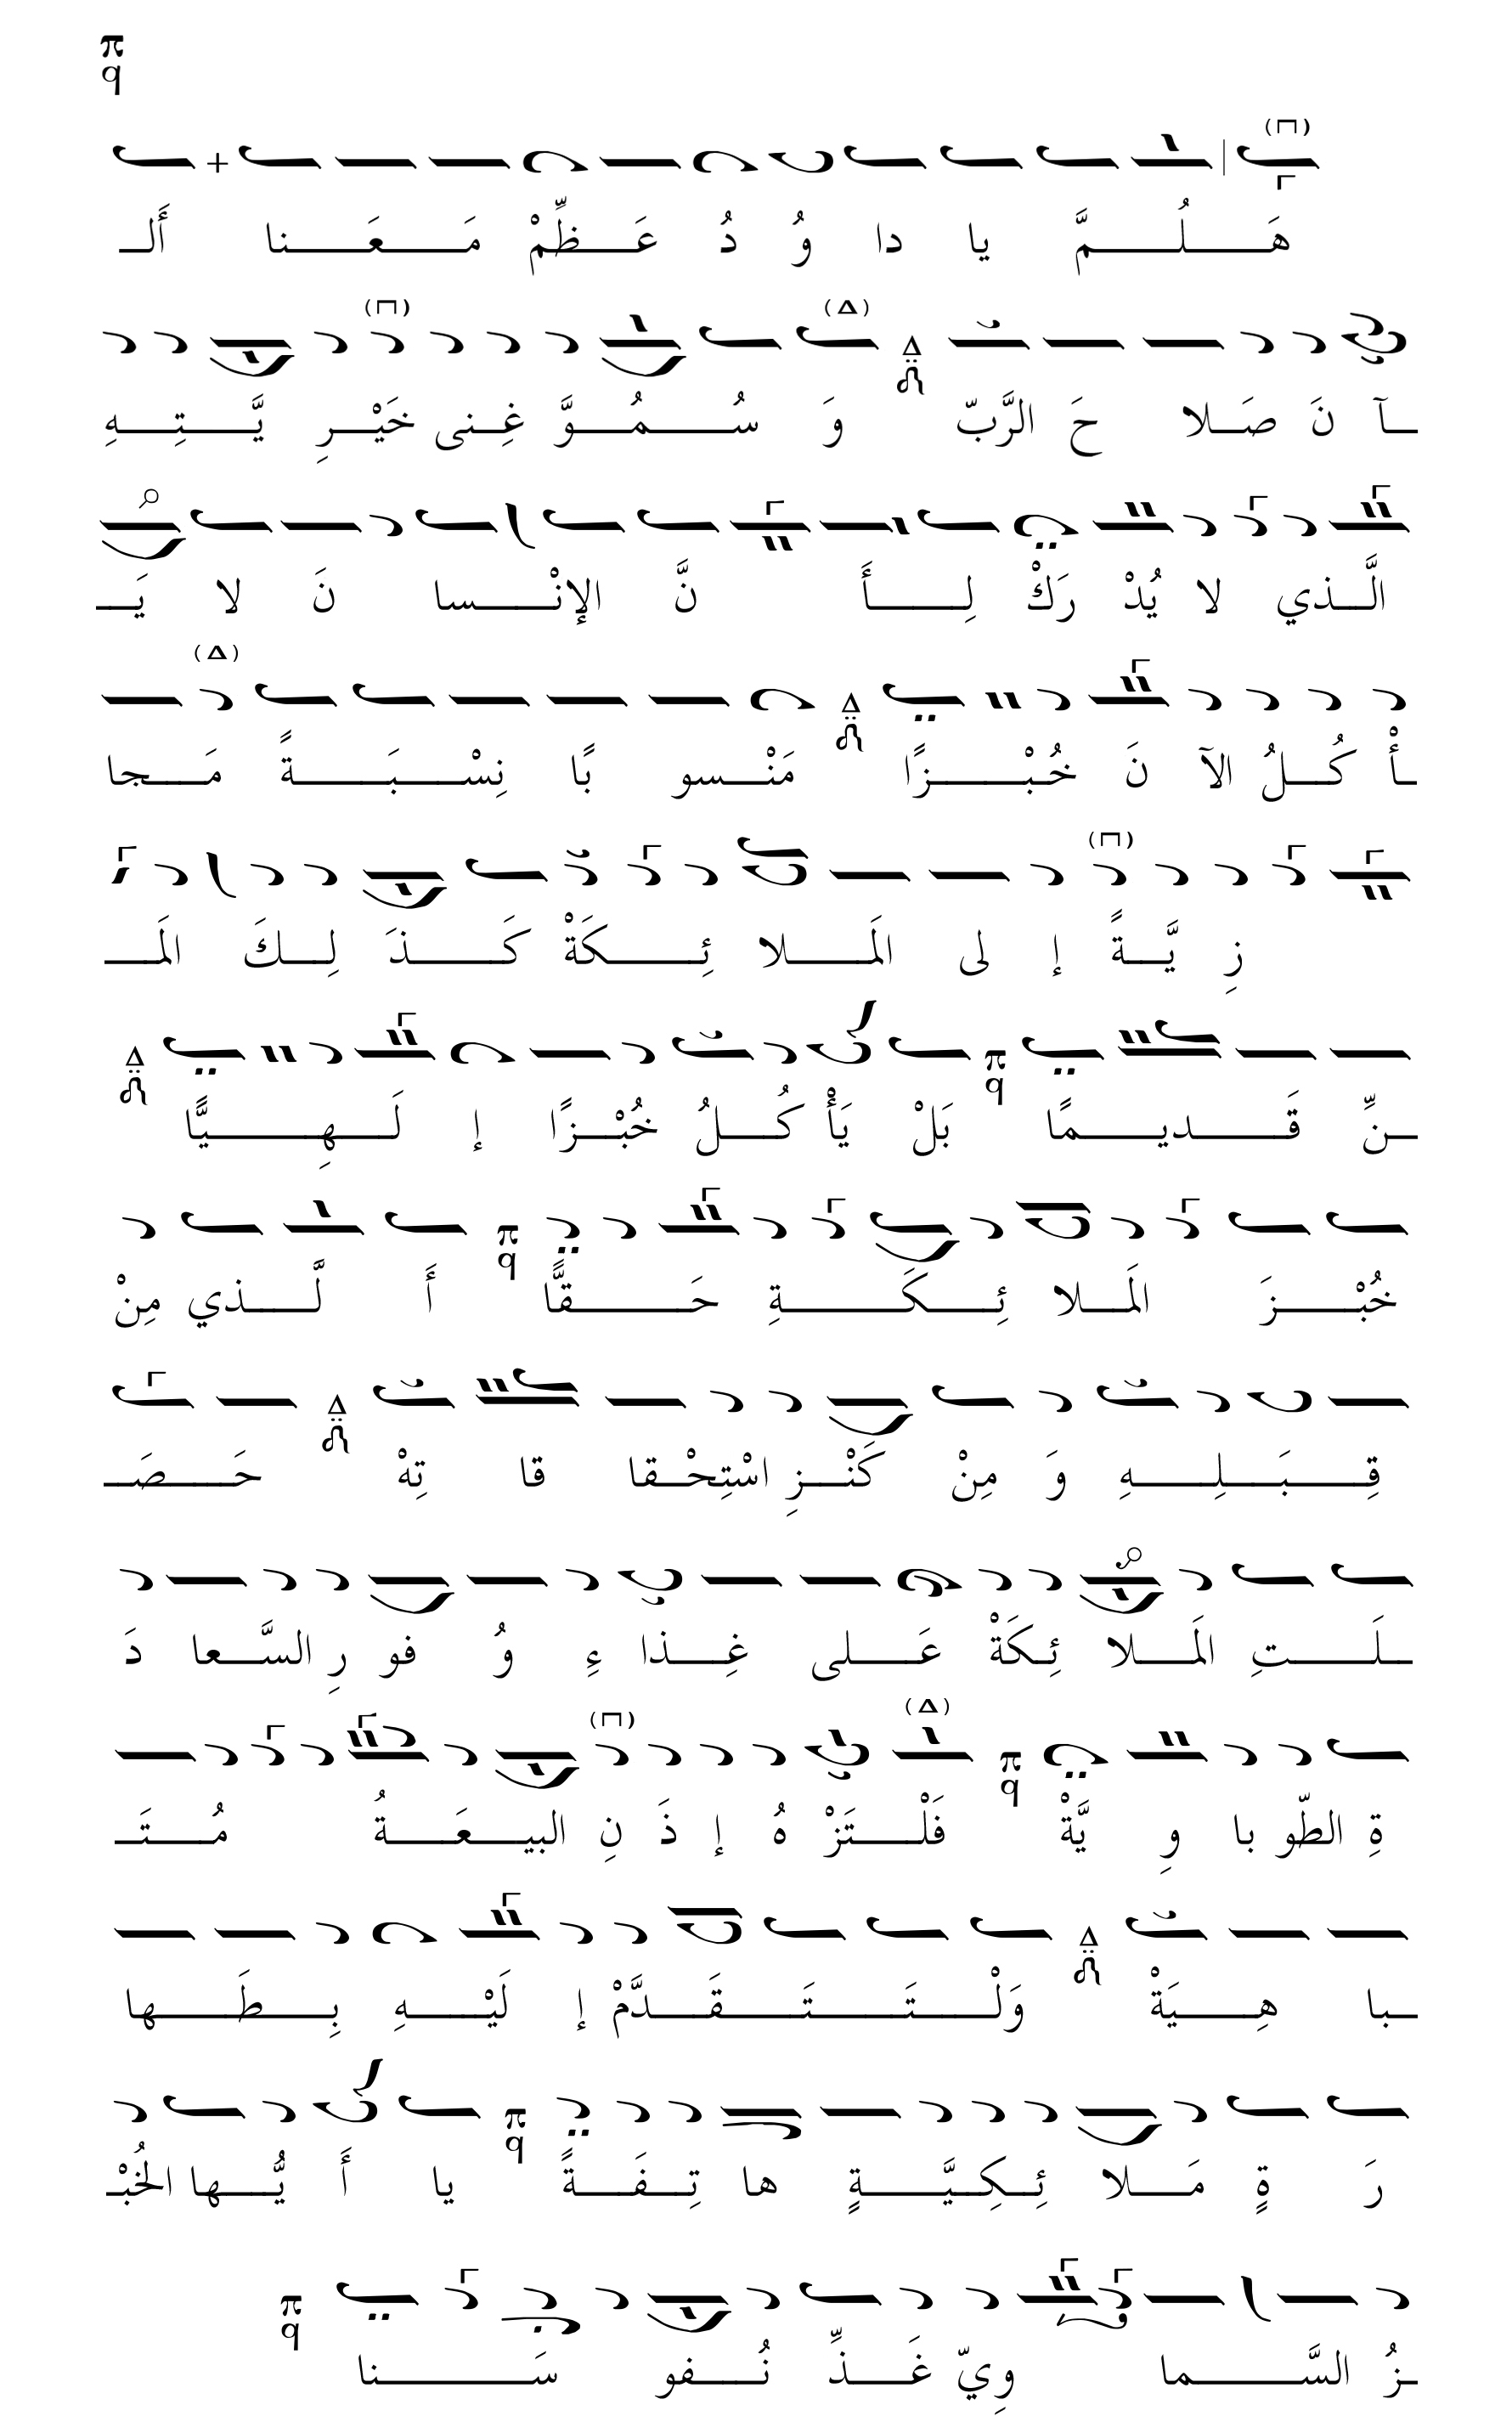 هَـلُـمَّ يا دا وُ دُ عَـظِّمْ مَـعَـنا أَلـ
ـآ نَ صَـلا حَ الرَّبّ وَ سُـمُـوَّ غِـنى خَيْـرِ يَّـتِـهِ
الَّـذي لا يُدْ رَكْ لِـأَ نَّ الإنْـسا نَ لا يَـ
ـأْ كُـلُ الآ نَ خُبْـزًا مَنْـسو بًا نِسْـبَـةً مَـجا
زِ يَّـةً إ لى المَـلا ئِـكَةْ كَـذَ لِـكَ المَـ
ـنِّ قَـديـمًا بَلْ يَأْ كُـلُ خُبْـزًا إ لَـهِـيًّا
خُبْـزَ المَـلا ئِـكَـةِ حَـقًّا أَ لَّـذي مِنْ
قِـبَـلِـهِ وَ مِنْ كَنْـزِ اسْتِحْـقا قا تِهْ حَـصَـ
ـلَـتِ المَـلا ئِكَةْ عَـلى غِـذا ءِ وُ فو رِ السَّـعا دَ
ةِ الطّو با وِ يَّةْ فَلْـتَزْ هُ إ ذَ نِ البيـعَـةُ مُـتَـ
ـبا هِـيَةْ وَلْـتَـتَـقَـدَّمْ إ لَيْـهِ بِـطَـها
رَ ةٍ مَـلا ئِـكِـيَّـةٍ ها تِـفَـةً يا أَ يُّـها الخُبْـ
ـزُ السَّـما وِيّ غَـذِّ نُـفو سَـنا